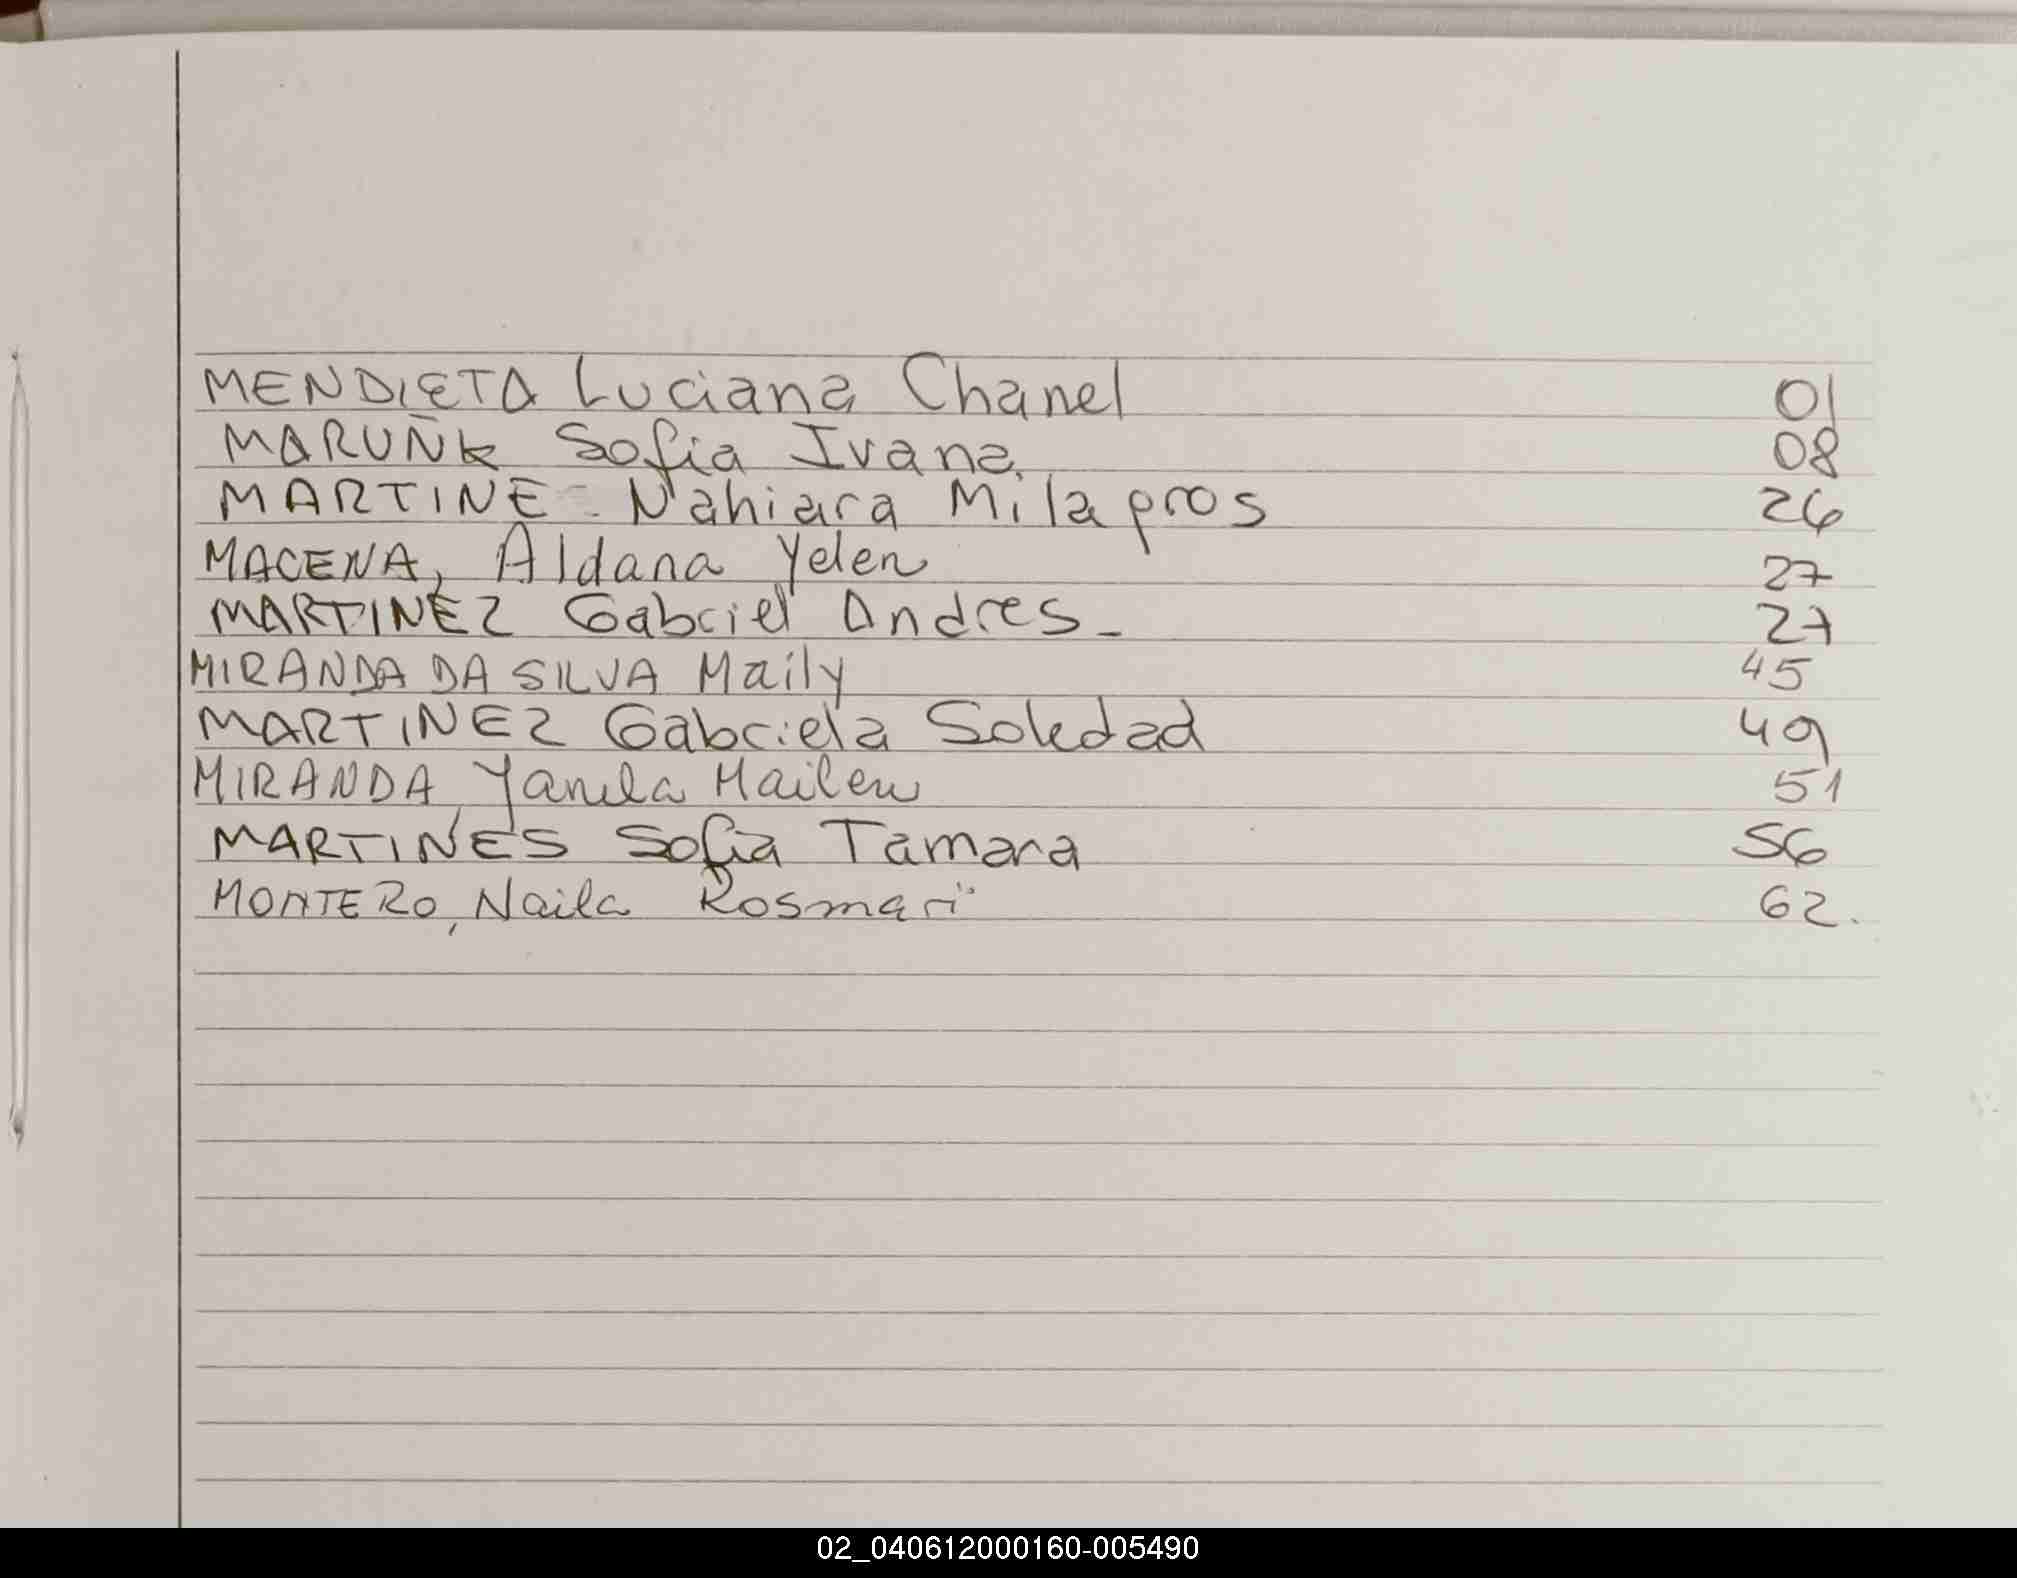 MENDIETA Luciana Chanel 01
MARUÑK Sofia Ivana 08
MARTINE Nahiara Milagros 26
MACENA, Aldana Yelen 27
MARTINEZ Gabriel Andres - 27
MIRANDA DA SILVA Maily 45
MARTINEZ Gabriela Soledad 49
MIRANDA, Yanela Mailen 51
MARTINES Sofia Tamara 56
MONTERO, Naila Rosmari 62.
02_040612000160-005490